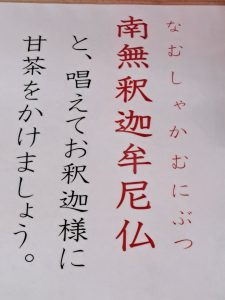 なむしゃかむにぶつ
南無釈迦牟尼仏
と、唱えてお釈迦様に
甘茶をかけましょう。